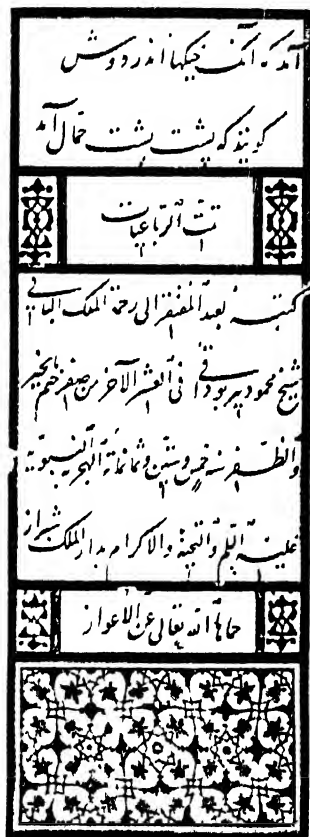 آمد گه آنک خیکها اندر دوش
گویند که پشت پشت حمال آمد
تمت الرباعیات
کتبه العبد المفتقر الی رحمة الملک الباقی
شیخ محمود پیربوداقی فی العشر الآخر من صفر ختم بالخیر
والظفر سنه خمس وستین وثمانمائة الهجریة النبویة
علیه السلم والتحیة والاکرام بدار الملک شیراز
حماها الله تعالی عن الاعواز